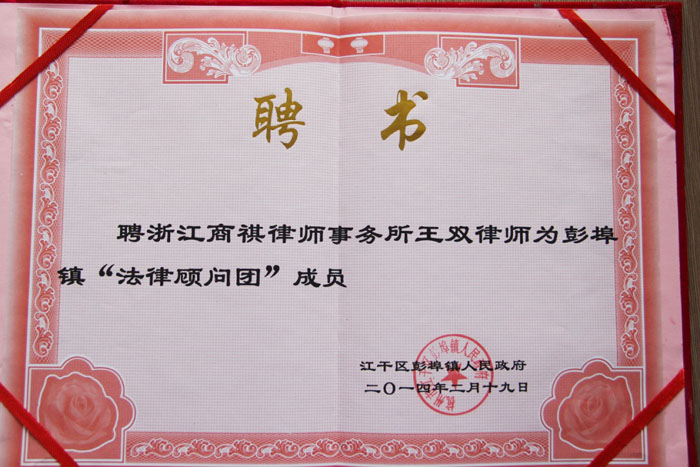 聘书
聘浙江商祺律师事务所王双律师为彭埠
镇“法律顾问团”成员
江干区彭埠镇人民政府
二〇一四年二月十九日